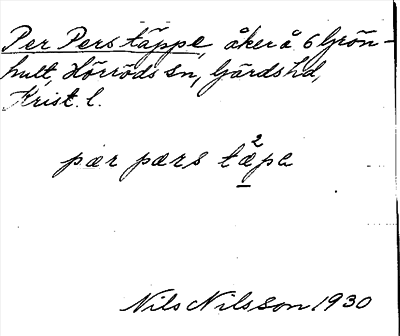 Per Pers täppe, åker å 6 Grön-
hult, Hörröds sn, Gärds hd,
Krist. l.
pær pærs tæ²pe
Nils Nilsson 1930